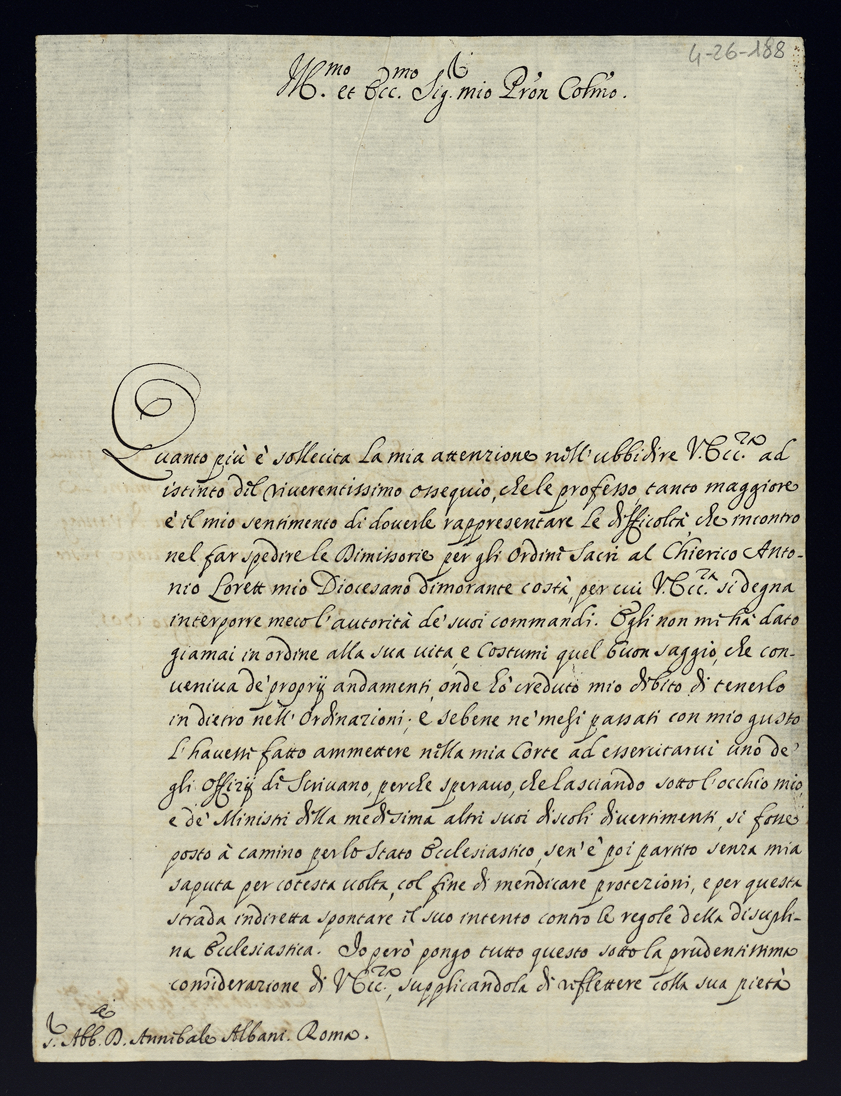 4-26-188
Ill.mo et Ecc.mo Sig.r mio Pron Colmo.
Quanto più è sollecita la mia attenzione nell'ubbidire V. Ecc.za ad
istinto del riverentissimo ossequio, che le professo, tanto maggiore
è il mio sentimento di doverle rappresentare le difficoltà che incontro
nel far spedire le Dimissorie per gli Ordini Sacri al Chierico Anto-
nio Lorett mio Diocesano dimorante costà, per cui V. Ecc.za si degna
interporre meco l'autorità de' suoi commandi. Egli non mi hà dato
giamai in ordine alla sua vita, e Costumi quel buon saggio, che con-
veniva de' proprij andamenti, onde hò creduto mio debito di tenerlo
in dietro nell'Ordinazioni; e sebene ne' mesi passati con mio gusto
l'havessi fatto ammettere nella mia Corte ad essercitarvi uno de'
gli Offizij di Scrivano, perche speravo, che lasciando sotto l'occhio mio,
e de' Ministri della medesima altri suoi discoli divertimenti, si fosse
posto à camino per lo Stato Ecclesiastico, sen'è poi partito senza mia
saputa per cotesta volta, col fine di mendicare protezioni, e per questa
strada indiretta spontare il suo intento contro le regole della discipli-
na Ecclesiastica. Io però pongo tutto questo sotto la prudentissima
considerazione di V. Ecc.za, supplicandola di riflettere colla sua pietà
S.r Abb.e D. Annibale Albani. Roma.